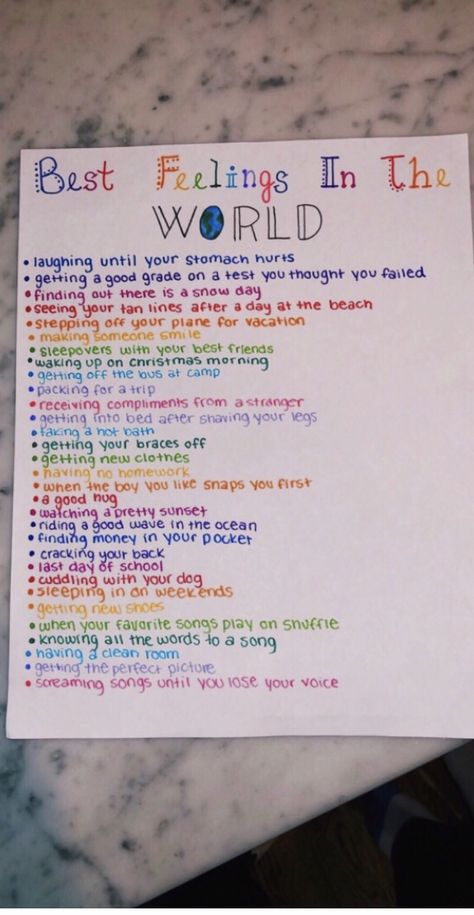 Best Feelings In The
WORLD
• laughing until your stomach hurts
• getting a good grade on a test you thought you failed
• finding out there is a snow day
• seeing your tan lines after a day at the beach
• stepping off your plane for vacation
• making someone smile
• sleepovers with your best friends
• waking up on christmas morning
• getting off the bus at camp
• packing for a trip
• receiving compliments from a stranger
• getting into bed after shaving your legs
• taking a hot bath
• getting your braces off
• getting new clothes
• having no homework
• when the boy you like snaps you first
• a good hug
• watching a pretty sunset
• riding a good wave in the ocean
• finding money in your pocket
• cracking your back
• last day of school
• cuddling with your dog
• sleeping in on weekends
• getting new shoes
• when your favorite songs play on shuffle
• knowing all the words to a song
• having a clean room
• getting the perfect picture
• screaming songs until you lose your voice